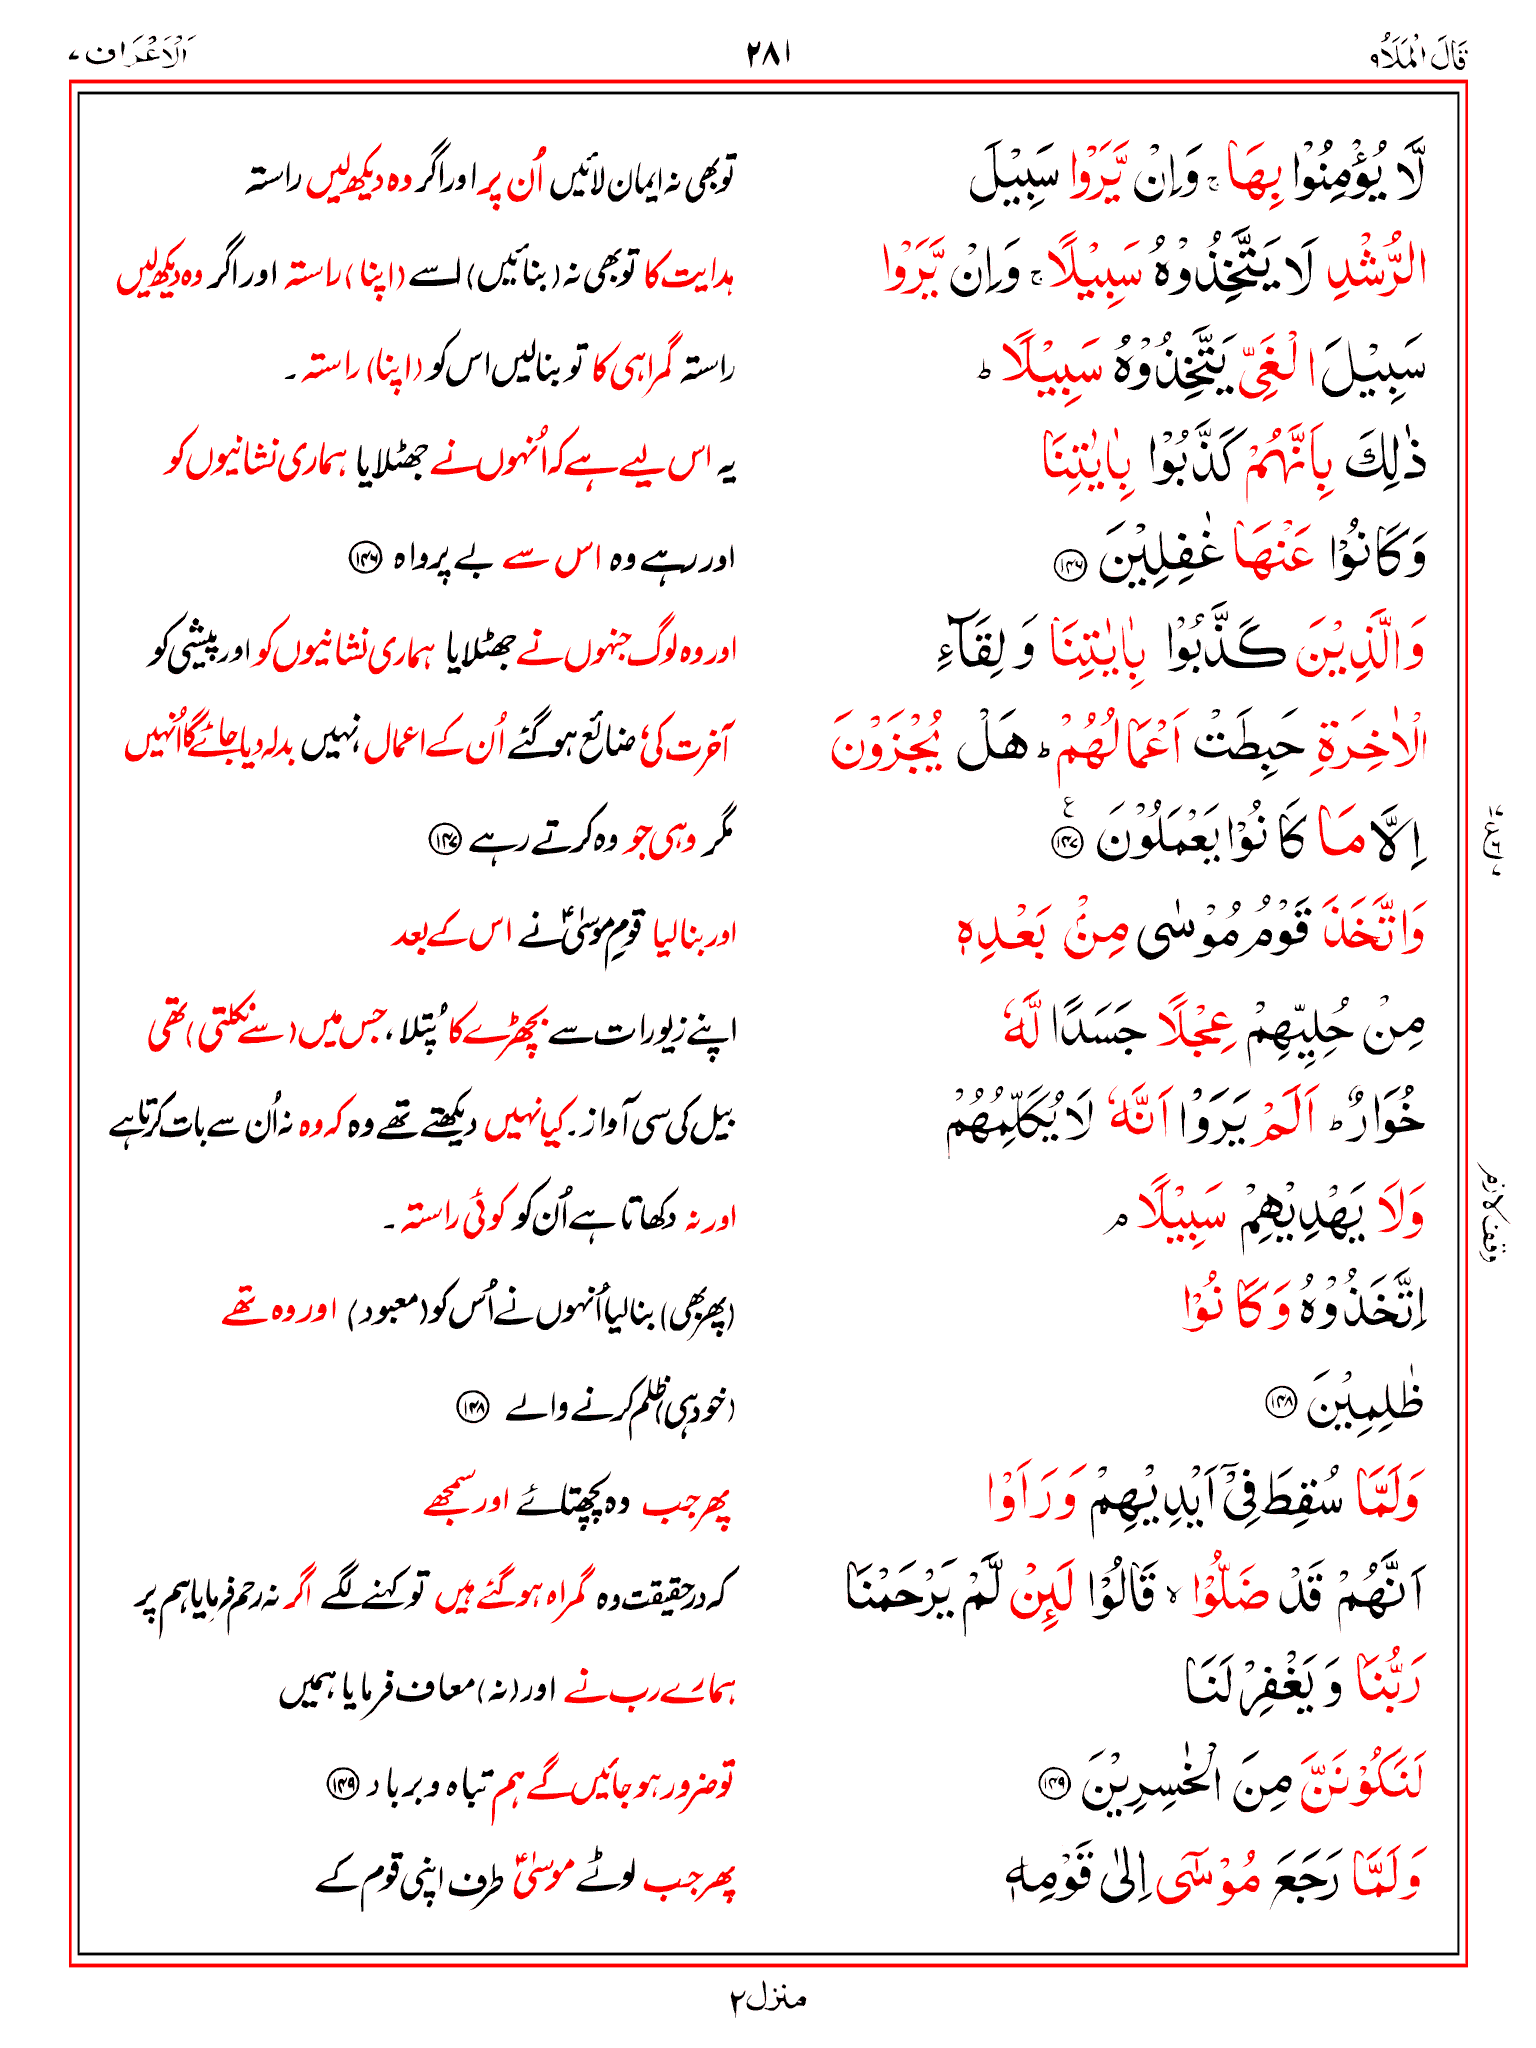 قَالَ الْمَلَاُ ۹
۲۸۱
اَلْاَعْرَاف ۷
لَّا يُؤْمِنُوْا بِهَا ۚ وَاِنْ يَّرَوْا سَبِيْلَ
توبھی نہ ایمان لائیں اُن پر اور اگر وہ دیکھ لیں راستہ
الرُّشْدِ لَا يَتَّخِذُوْهُ سَبِيْلًا ۚ وَاِنْ يَّرَوْا
ہدایت کا توبھی نہ (بنائیں) اسے (اپنا) راستہ اور اگر وہ دیکھ لیں
سَبِيْلَ الْغَىِّ يَتَّخِذُوْهُ سَبِيْلًا ؕ
راستہ گمراہی کا تو بنالیں اس کو (اپنا) راستہ۔
ذٰلِكَ بِاَنَّهُمْ كَذَّبُوْا بِاٰيٰتِنَا
یہ اس لیے ہے کہ اُنہوں نے جھٹلایا ہماری نشانیوں کو
وَكَانُوْا عَنْهَا غٰفِلِيْنَ ۱۴۶
اور رہے وہ اس سے بے پرواہ ۱۴۶
وَالَّذِيْنَ كَذَّبُوْا بِاٰيٰتِنَا وَ لِقَآءِ
اور وہ لوگ جنہوں نے جھٹلایا ہماری نشانیوں کو اور پیشی کو
الْاٰخِرَةِ حَبِطَتْ اَعْمَالُهُمْ ؕ هَلْ يُجْزَوْنَ
آخرت کی، ضائع ہو گئے اُن کے اعمال، نہیں بدلہ دیا جائے گا اُنہیں
اِلَّا مَا كَانُوْا يَعْمَلُوْنَ ۱۴۷ ع
مگر وہی جو وہ کرتے رہے ۱۴۷
وَاتَّخَذَ قَوْمُ مُوْسٰى مِنْۢ بَعْدِهٖ
اور بنا لیا قومِ موسیٰؑ نے اس کے بعد
مِنْ حُلِيِّهِمْ عِجْلًا جَسَدًا لَّهٗ
اپنے زیورات سے بچھڑے کا پُتلا، جس میں (سے نکلتی) تھی
خُوَارٌ ؕ اَلَمْ يَرَوْا اَنَّهٗ لَا يُكَلِّمُهُمْ
بیل کی سی آواز۔ کیا نہیں دیکھتے تھے وہ کہ وہ نہ اُن سے بات کرتا ہے
وَلَا يَهْدِيْهِمْ سَبِيْلًا ۘ
اور نہ دکھاتا ہے اُن کو کوئی راستہ۔
وقف لازم
اِتَّخَذُوْهُ وَكَانُوْا
(پھر بھی) بنالیا اُنہوں نے اُس کو (معبود) اور وہ تھے
ظٰلِمِيْنَ ۱۴۸
(خود ہی) ظلم کرنے والے ۱۴۸
وَلَمَّا سُقِطَ فِىْٓ اَيْدِيْهِمْ وَرَاَوْا
پھر جب وہ پچھتائے اور سمجھے
اَنَّهُمْ قَدْ ضَلُّوْا ۙ قَالُوْا لَىِٕنْ لَّمْ يَرْحَمْنَا
کہ درحقیقت وہ گمراہ ہو گئے ہیں تو کہنے لگے اگر نہ رحم فرمایا ہم پر
رَبُّنَا وَ يَغْفِرْ لَنَا
ہمارے رب نے اور (نہ) معاف فرمایا ہمیں
لَنَكُوْنَنَّ مِنَ الْخٰسِرِيْنَ ۱۴۹
تو ضرور ہو جائیں گے ہم تباہ و برباد ۱۴۹
وَلَمَّا رَجَعَ مُوْسٰٓى اِلٰى قَوْمِهٖ
پھر جب لوٹے موسیٰؑ طرف اپنی قوم کے
منزل ۲